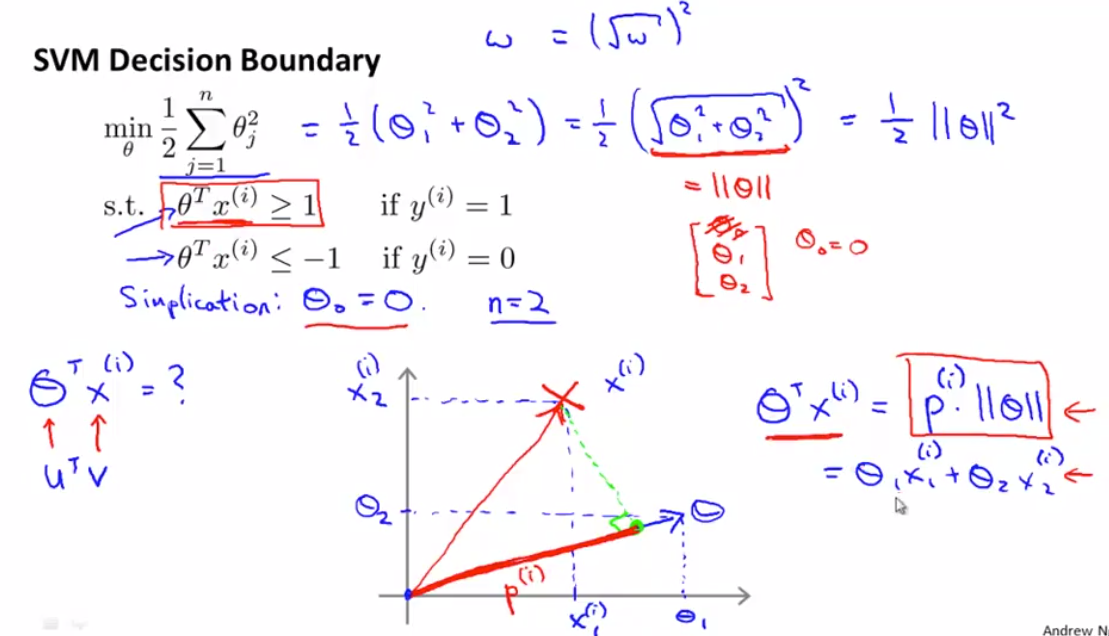 ω = (√ω)²
SVM Decision Boundary
min_θ 1/2 ∑_{j=1}^{n} θ_j² = 1/2 (θ₁² + θ₂²) = 1/2 (√(θ₁² + θ₂²))² = 1/2 ||θ||²
= ||θ||
s.t. θᵀx⁽ⁱ⁾ ≥ 1 if y⁽ⁱ⁾ = 1
→ θᵀx⁽ⁱ⁾ ≤ −1 if y⁽ⁱ⁾ = 0
[θ₀ θ₁ θ₂] θ₀ = 0
Simplication: θ₀ = 0. n=2
θᵀx⁽ⁱ⁾ = ?
↑ ↑
uᵀv
x₂⁽ⁱ⁾
x⁽ⁱ⁾
θ₂
θ
p⁽ⁱ⁾
x₁⁽ⁱ⁾
θ₁
θᵀx⁽ⁱ⁾ = p⁽ⁱ⁾ · ||θ|| ←
= θ₁x₁⁽ⁱ⁾ + θ₂x₂⁽ⁱ⁾ ←
Andrew N